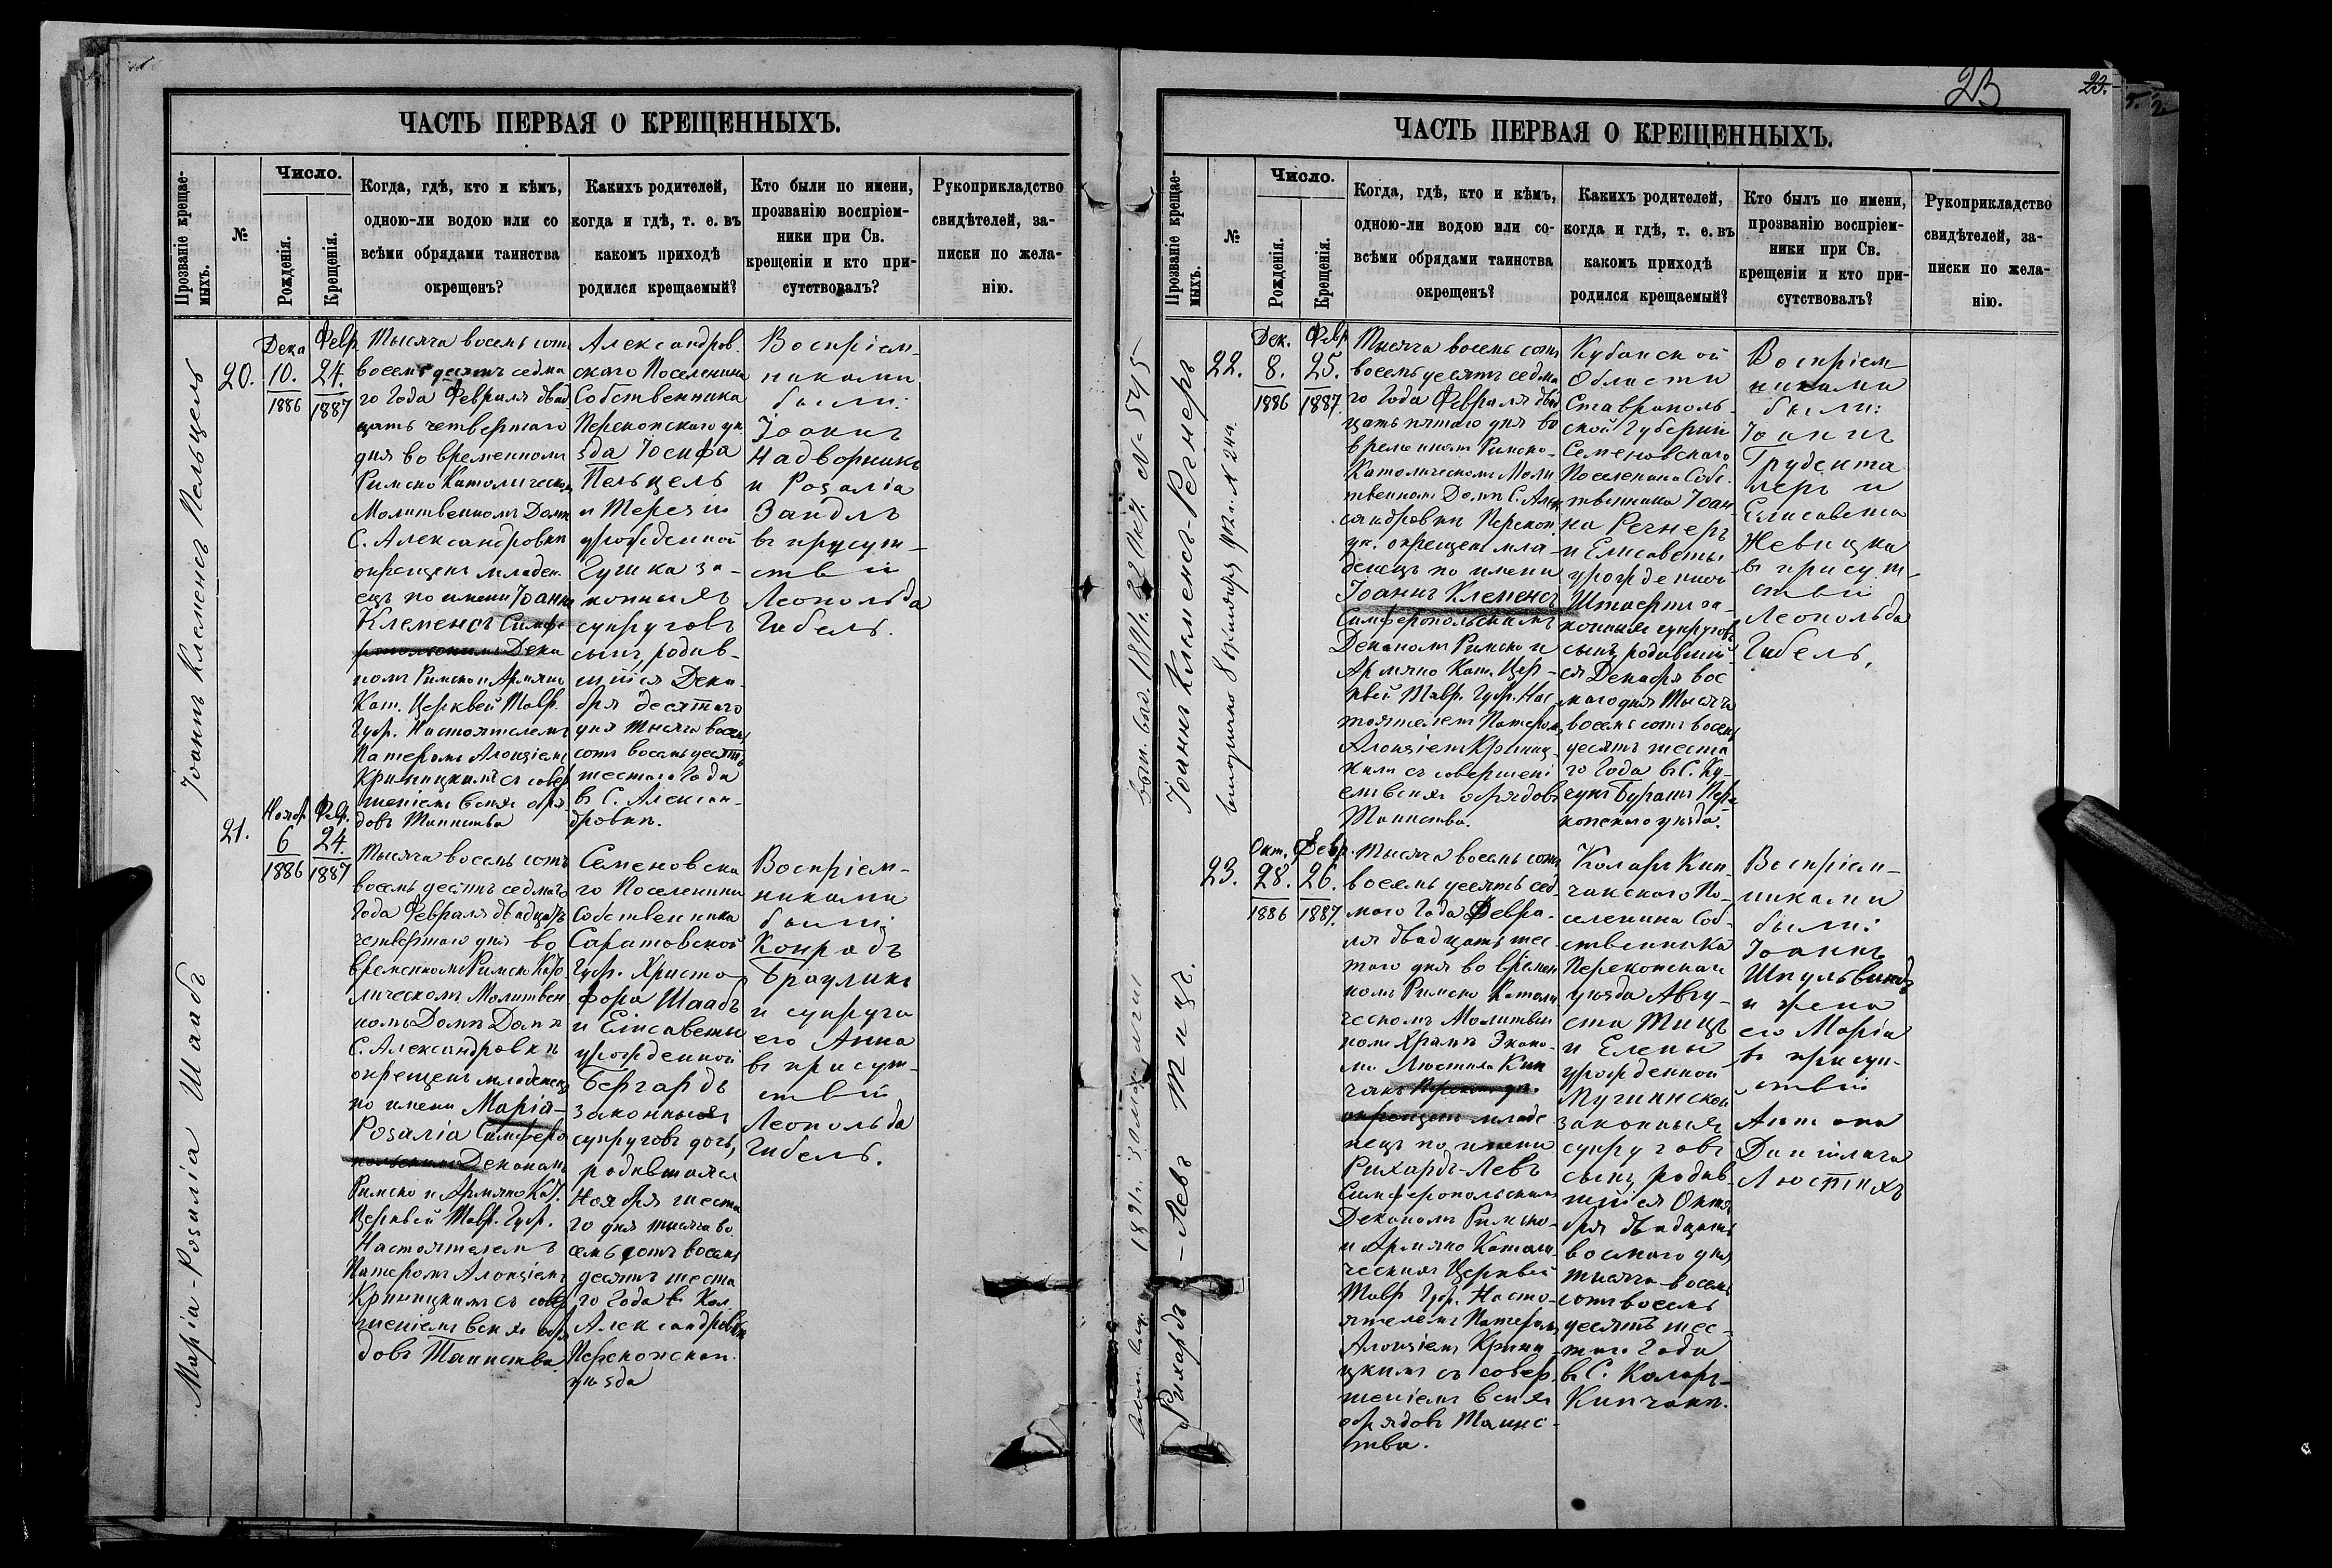 ЧАСТЬ ПЕРВАЯ О КРЕЩЕННЫХЪ.
Прозваніе крещае-
мыхъ.
№
Число.
Рожденія.
Крещенія.
Когда, гдѣ, кто и кѣмъ,
одною-ли водою или со
всѣми обрядами таинства
окрещенъ?
Какихъ родителей,
когда и гдѣ, т. е. въ
какомъ приходѣ
родился крещаемый?
Кто были по имени,
прозванію воспріем-
ники при Св.
крещеніи и кто при-
сутствовалъ?
Рукоприкладство
свидѣтелей, за-
писки по жела-
нію.
Іоаннъ Клеменсъ Пельцель
20.
Дека
10.
1886
Февр
24.
1887
Тысяча восемь сотъ
восемьдесятъ седма
го Года Февраля двад
цать четвертаго
дня во временномъ
Римско Католическом
Молитвенномъ Домѣ
С. Александровки
окрещенъ младен
ецъ по имени Іоаннъ
Клеменсъ Симфе
Дека
номъ Римско и Армяно
Кат. Церквей Тавр.
Губ. Настоятелемъ
Патеромъ Алоизіемъ
Криницкимъ съ совер
шеніемъ всѣхъ обря
довъ Таинства
Александров.
скаго Поселенина
Собственника
Перекопскаго уѣ
зда Іосифа
Пельцель
и Терезіи
урожденной
Гушка за-
конныхъ
супруговъ
сынъ, родив-
шійся Дека-
бря десятаго
дня тысяча восемь
сотъ восемьдесятъ
шестаго Года
въ С. Алексан-
дровкѣ.
Воспріем-
никами
были:
Іоаннъ
Надворникъ
и Розалія
Зандлъ
въ присут-
ствіи
Леопольда
Гибель.
Марія-Розалія Шаабъ
21.
Ноябр.
6
1886
Февр.
24.
1887
Тысяча восемь сотъ
восемь десятъ седмаго
Года Февраля двадцать
четвертаго дня во
временномъ Римско Като
лическомъ Молитвен
номъ Домѣ Домѣ
С. Александровкѣ
окрещенъ младенецъ
по имени Марія-
Розалія Симферо
Деканомъ
Римско и Армяно Кат.
Церквей Тавр. Губ.
Настоятелемъ
Патеромъ Алоизіемъ
Криницкимъ съ совер
шеніемъ всѣхъ обря
довъ Таинства.
Семеновска
го Поселенина
Собственника
Саратовской
Губ. Христо
фора Шаабъ
и Елисаветы
урожденной
Бергардъ
законныхъ
супруговъ дочь,
родившаяся
Ноября шеста
го дня тысяча во
семь сотъ восемь
десятъ шеста
го Года въ Кол.
Александровкѣ
Перекопскаго
уѣзда
Воспріем-
никами
были:
Конрадъ
Браулихъ
и супруга
его Анна
въ присут-
ствіи
Леопольда
Гибель.
23
23.
ЧАСТЬ ПЕРВАЯ О КРЕЩЕННЫХЪ.
Прозваніе крещае-
мыхъ.
№
Число.
Рожденія.
Крещенія.
Когда, гдѣ, кто и кѣмъ,
одною-ли водою или со-
всѣми обрядами таинства
окрещенъ?
Какихъ родителей,
когда и гдѣ, т. е. въ
какомъ приходѣ
родился крещаемый?
Кто былъ по имени,
прозванію воспріем-
ники при Св.
крещеніи и кто при-
сутствовалъ?
Рукоприкладство
свидѣтелей, за-
писки по жела-
нію.
Іоаннъ Клеменсъ-Регнеръ
22.
Дек.
8.
1886
Февр
25.
1887.
Тысяча восемь сотъ
восемьдесятъ седма
го Года Февраля двад
цать пятаго дня во
временномъ Римско-
Католическомъ Моли
твенномъ Домѣ С. Алек
сандровки Перекоп
уѣ. окрещенъ мла-
денецъ по имени
Іоаннъ Клеменсъ
Симферопольскимъ
Деканомъ Римско и
Армяно Кат. Цер-
квей Тавр. Губ. Нас
тоятелемъ Патеромъ
Алоизіемъ Криниц
кимъ съ совершені
емъ всѣхъ обрядовъ
Таинства.
Кубанской
Области
Ставрополь
ской Губерніи
Семеновскаго
Поселенина Соб-
ственника Іоан-
на Регнеръ
и Елисаветы
урожденной
за-
конныхъ супруговъ
сынъ, родившій
ся Декабря вос
маго дня Тысяча
восемь сотъ восемь
десятъ шеста
го Года въ С. Ку-
чукъ Буранъ Пере
копскаго уѣзда.
Воспріем
никами
были:
Іоаннъ
Грудента
леръ и
Елисавета
Жевицка
въ присут-
ствіи
Леопольда
Гибель.
Рихардъ-Левъ Тицъ.
23.
Окт.
28.
1886
Февр.
26.
1887.
Тысяча восемь сотъ
восемь десятъ сед
маго Года Февра-
ля двадцать шес-
таго дня во времен
номъ Римско Католи
ческомъ Молитвен
номъ Храмѣ Эконо-
міи Люстиха Кип
чакъ
окрещенъ младе
нецъ по имени
Рихардъ-Левъ
Симферопольскимъ
Деканомъ Римско-
и Армяно Католи-
ческихъ Церквей
Тавр Губ. Насто-
ятелемъ Патеромъ
Алоизіемъ Крини-
цкимъ съ совер-
шеніемъ всѣхъ
обрядовъ Таинс-
тва.
Коларъ Кип-
чакскаго По-
селенина Соб-
ственника
Перекопскаго
уѣзда Авгу-
ста Тицъ
и Елены
урожденной
Мучинской
законныхъ
супруговъ
сынъ, родив-
шійся Октя
бря двадцать
восмаго дня
тысяча восемь
сотъ восемь
десятъ шес-
таго Года
въ С. Коларъ-
Кипчакѣ.
Воспріем-
никами
были:
Іоаннъ
и жена
его Марія
въ присут-
ствіи
Антона
Даніилача
Люстихъ